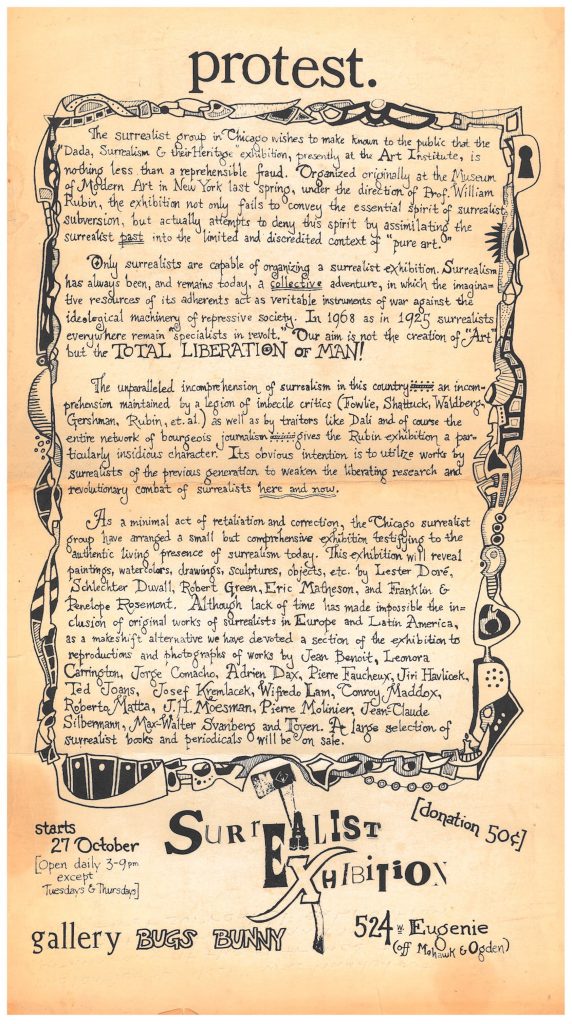 protest.
The surrealist group in Chicago wishes to make known to the public that the
"Dada, Surrealism & their Heritage" exhibition, presently at the Art Institute, is
nothing less than a reprehensible fraud. Organized originally at the Museum
of Modern Art in New York last spring, under the direction of Prof. William
Rubin, the exhibition not only fails to convey the essential spirit of surrealist
subversion, but actually attempts to deny this spirit by assimilating the
surrealist past into the limited and discredited context of "pure art."
Only surrealists are capable of organizing a surrealist exhibition. Surrealism
has always been, and remains today, a collective adventure, in which the imagina-
tive resources of its adherents act as veritable instruments of war against the
ideological machinery of repressive society. In 1968 as in 1925 surrealists
everywhere remain "specialists in revolt." Our aim is not the creation of "Art"
but the TOTAL LIBERATION OF MAN!
The unparalleled incomprehension of surrealism in this country an incom-
prehension maintained by a legion of imbecile critics (Fowlie, Shattuck, Waldberg,
Gershman, Rubin, et. al.) as well as by traitors like Dali and of course the
entire network of bourgeois journalism gives the Rubin exhibition a par-
ticularly insidious character. Its obvious intention is to utilize works by
surrealists of the previous generation to weaken the liberating research and
revolutionary combat of surrealists here and now.
As a minimal act of retaliation and correction, the Chicago surrealist
group have arranged a small but comprehensive exhibition testifying to the
authentic living presence of surrealism today. This exhibition will reveal
paintings, watercolors, drawings, sculptures, objects, etc. by Lester Doré,
Schlechter Duvall, Robert Green, Eric Matheson, and Franklin &
Penelope Rosemont. Although lack of time has made impossible the in-
clusion of original works of surrealists in Europe and Latin America,
as a makeshift alternative we have devoted a section of the exhibition to
reproductions and photographs of works by Jean Benoit, Leonora
Carrington, Jorge Camacho, Adrien Dax, Pierre Faucheux, Jiri Havlicek,
Ted Joans, Josef Kremlacek, Wifredo Lam, Conroy Maddox,
Roberto Matta, J.H. Moesman, Pierre Molinier, Jean-Claude
Silbermann, Max-Walter Svanberg and Toyen. A large selection of
surrealist books and periodicals will be on sale.
starts
27 October
[Open daily 3-9pm
except
Tuesdays & Thursdays]
SURREALIST
EXHIBITION
[donation 50¢]
gallery BUGS BUNNY
524 W. Eugenie
(off Mohawk & Ogden)